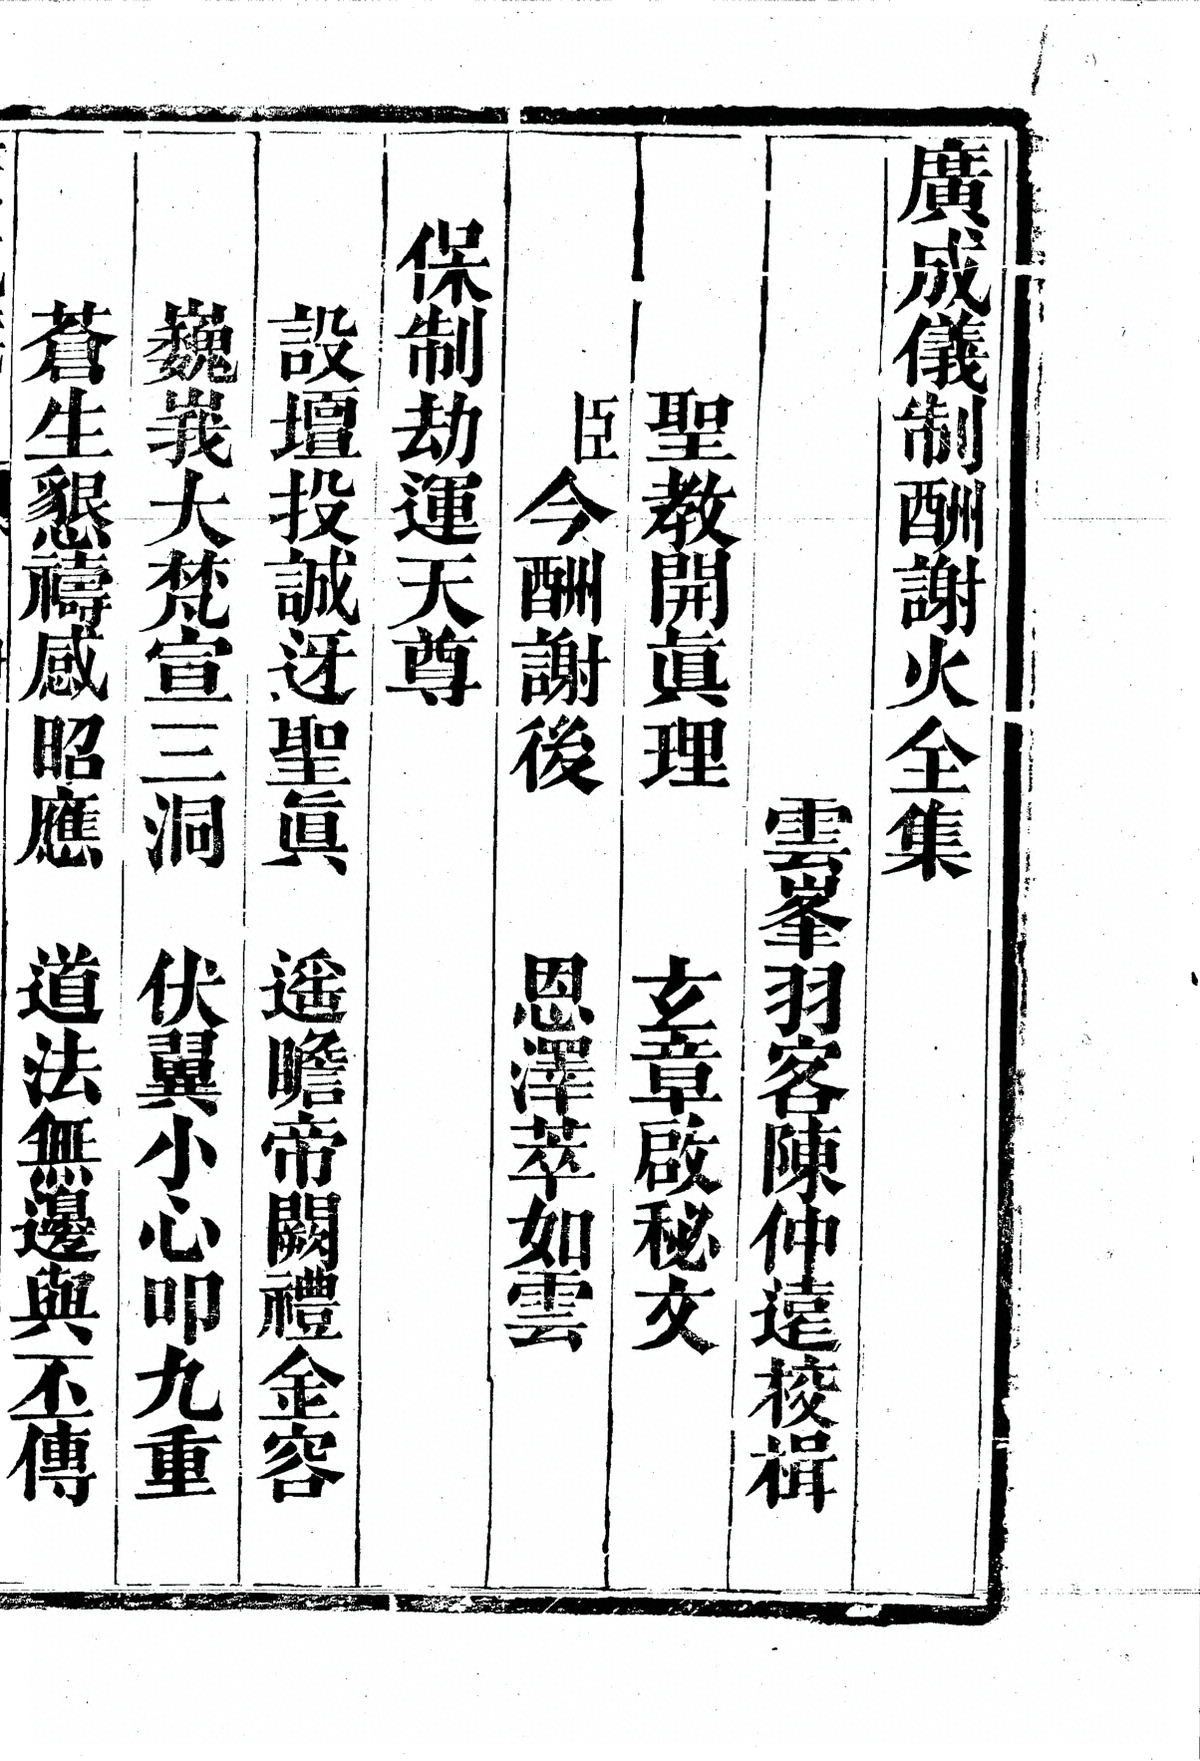 廣成儀制酬謝火全集
雲峯羽客陳仲遠校楫
聖教開眞理　玄章啟秘文
臣今酬謝後　恩澤萃如雲
保制劫運天尊
設壇投誠迓聖眞　遥瞻帝闕禮金容
巍峩大梵宣三洞　伏翼小心叩九重
蒼生懇禱感昭應　道法無邊與丕傳